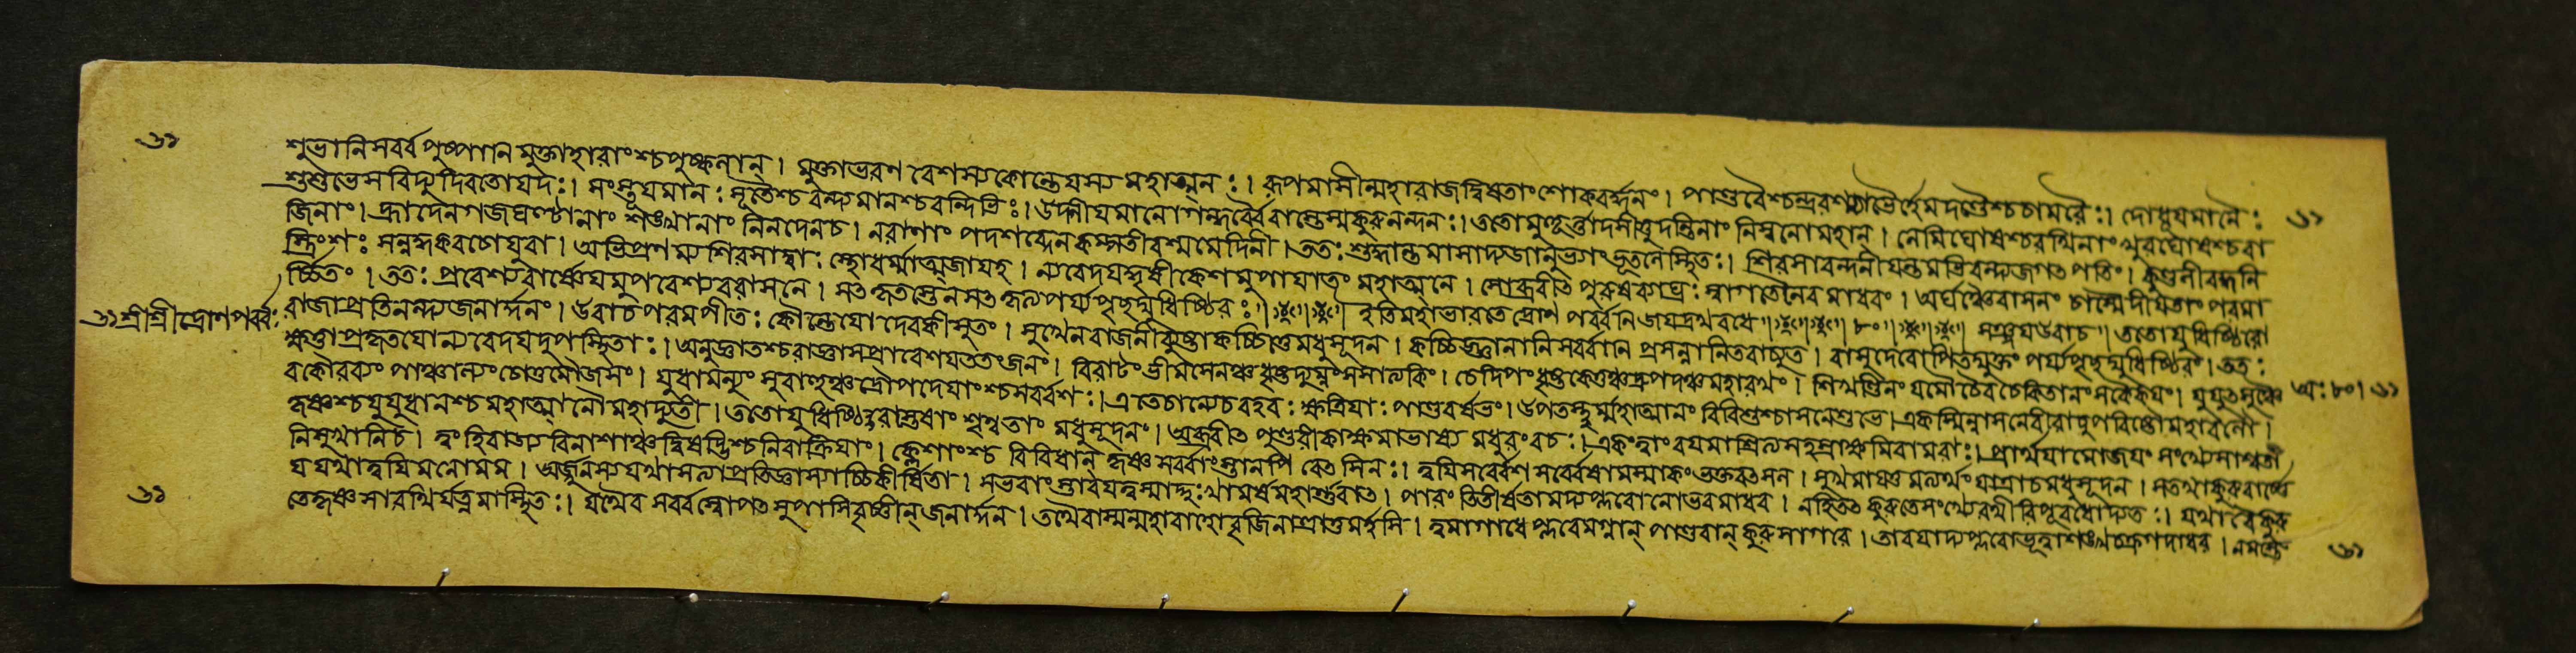 শুভানিসবর্ব পুষ্পানি মুক্তাহারাংশ্চপুষ্কলান্। মুক্তাভরণ বেশস্যকৌন্তেযস্য মহাত্মনঃ। রূপমাসীন্মহারাজদ্বিষতাংশোকবর্দ্ধনং। পাণ্ডবৈশ্চন্দ্ররশ্ম্যাভৈর্হেমদণ্ডৈশ্চচামরৈঃ। দোধূযমানৈঃ
শুশুভেসবিদ্যুদিবতোযদঃ। সংস্তূযমানঃ সূতৈশ্চবন্দ্যমানশ্চবন্দিভিঃ। উপগীযমানোগন্ধর্বৈরাস্তেস্মকুরুনন্দনঃ। ততোমুহূর্ত্তাদাসীত্তুদন্তিনাং নিস্বনোমহান্। নেমিঘোষশ্চরথিনাংখুরঘোষশ্চবা
জিনাং। হ্রাদেনগজঘণ্টানাং শঙ্খানাং নিনদেনচ। নরাণাং পদশব্দেনকম্পতীবস্মমেদিনী। ততঃ শুদ্ধান্তমাসাদ্যজানুভ্যাংভূতলেস্থিতঃ। শিরসাবন্দনীযন্তমভিবন্দ্যজগত পতিং। কুণ্ডলীবদ্ধনি
স্ত্রিংশঃ সন্নদ্ধকবচোযুবা। অভিপ্রণম্য শিরসাদ্বাঃস্থোধর্ম্মাত্মজাযহ। ন্যবেদযদ্ধৃষীকেশমুপাযাতং মহাত্মনে। সোব্রবীত পুরুষব্যাঘ্রঃ স্বাগতেনৈব মাধবং। অর্ঘঞ্চৈবাসনং চাস্মৈ দীযতাং পরমা
র্চ্চিতং। ততঃ প্রবেশ্যবার্ষ্ণেযমুপবেশ্যবরাসনে। সতকৃতস্তেনসতকৃত্যপর্য্যপৃছদ্যুধিষ্ঠিরঃ॥ ইতিমহাভারতে দ্রোণ পবর্বনিজযদ্রথবধে॥ ৮০॥ সঞ্জযউবাচ॥ ততোযুধিষ্ঠিরো
রাজাপ্রতিনন্দ্যজনার্দ্দনং। উবাচপরমপ্রীতঃ কৌন্তেযোদেবকীসুতং। সুখেনরাজনীব্যুষ্টাকচ্চিত্তেমধুসূদন। কচ্চিজ্জ্ঞানানিসবর্বানি প্রসন্নানিতবাচ্যুত। বাসুদেবোপিতদ্যুক্তং পর্য্যপৃছদ্যুধিষ্ঠিরং। ততঃ
ক্ষত্তাপ্রকৃতযোন্যবেদযদুপস্থিতাঃ। অনুজ্ঞাতশ্চরাজ্ঞাসপ্রাবেশযততংজনং। বিরাটং ভীমসেনঞ্চধৃষ্টদ্যুম্নংসসাত্যকিং। চেদিপংধৃষ্টকেতুঞ্চদ্রুপদঞ্চমহারথং। শিখণ্ডিনং যমৌচৈব চেকিতানং সকৈকযং। যুযুতসুঞ্চৈ
বকৌরব্যং পাঞ্চাল্যংচোত্তমৌজসং। যুধামন্যুং সুবাহুঞ্চদ্রৌপদেযাংশ্চসবর্বশঃ। এতেচান্যেচবহবঃ ক্ষত্রিযাঃ পাণ্ডবর্ষভং। উপতস্থুর্ম্মহাত্মানং বিবিশুশ্চাসনেশুভে। একস্মিন্নাসনেবীরাবুপবিষ্টৌমহাবলৌ।
কৃষ্ণশ্চযুযুধানশ্চমহাত্মানৌমহাদ্যুতী। ততোযুধিষ্ঠিরোস্তেষাং শৃণ্বতাং মধুসূদনং। অব্রবীত পুণ্ডরীকাক্ষমাভাষ্য মধুরংবচঃ। একংত্বাংবযমাশ্রিত্যসহস্রাক্ষমিবামরাঃ। প্রার্থযামোজযং সংখ্যেশাশ্বতা
নিসুখানিচ। ত্বংহিরাজ্য বিনাশাঞ্চদ্বিষদ্ভিশ্চনিরাক্রিযাং। ক্লেশাংশ্চ বিবিধান্ কৃষ্ণ সবর্বাংস্তানপি বেত সিনঃ। ত্বযিসবের্বশ সবের্বষামস্মাকংভক্তবতসল। সুখমাযত্তমত্যর্থং যাত্রাচমধুসূদন। সতথাকুরুবার্ষ্ণে
য যথাত্বযিমনোমম। অর্জ্জুনস্য যথাসত্যাপ্রতিজ্ঞাস্যাচ্চিকীর্ষিতা। সভবাংস্তারযত্বস্মাদ্দুঃখামর্ষমহার্ণবাত। পারং তিতীর্ষতামদ্যপ্লবোনোভবমাধব। নহিতত কুরুতেসংখ্যেরথীরিপুবধোদ্যতঃ। যথাবৈকুরু
তেকৃষ্ণসারথির্যত্নমাস্থিতঃ। যথৈব সবর্বস্বোপত সুপাসিবৃষ্ণীন্ জনার্দ্দন। তথৈবাস্মন্মহাবাহোবৃজিনাত্ত্রাতুমর্হসি। ত্বমাগাধে প্লবেমগ্নান্ পাণ্ডবান্ কুরুসাগরে। তারযাদ্যপ্লবোভূত্বাশঙ্খচক্রগদাধর। নমস্তে
শ্রীশ্রীদ্রোণপবর্বঃ
অঃ ৮০।